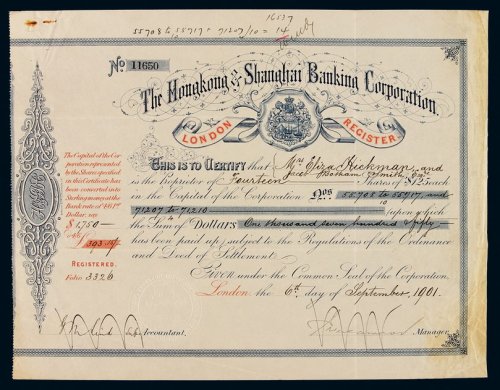 16537
55708 to 55717 = 71207/10 = 14
No 11650
The Hongkong and Shanghai Banking Corporation
LONDON REGISTER
This is to Certify that Mrs Eliza Heekman, and
is the Proprietor of Fourteen Shares of $125 each
in the Capital of the Corporation Nos 55708 to 55717, and
71207 to 71210 upon which
10
the Sum of Dollars One thousand seven hundred & fifty
has been paid up, subject to the Regulations of the Ordinance
and Deed of Settlement.
Given under the Common Seal of the Corporation
London, the 6th day of September, 1901.
Accountant,
Manager.
The Capital of the Cor-
poration represented
by the Shares specified
in this Certificate has
been converted into
Sterling money at the
fixed rate of
say
$1,750—
REGISTERED.
Folio 3326